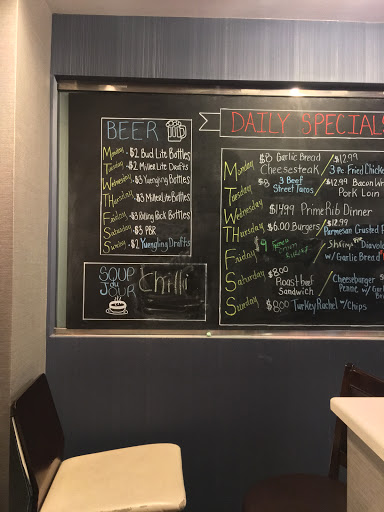 BEER
Monday - $2 Bud Lite Bottles
Tuesday - $2 Miller Lite Drafts
Wednesday - $3 Yuengling Bottles
THursday - $3 Miller Lite Bottles
Friday - $3 Rolling Rock Bottles
Saturday - $3 PBR
Sunday - $2 Yuengling Drafts
SOUP
du
JOUR
Chilli
DAILY SPECIALS
Monday $8 Garlic Bread Cheesesteak / $12.99 3 Pc. Fried Chicken
Tuesday $8 3 Beef Street Tacos / $12.99 Bacon Wr
Pork Loin
Wednesday $14.99 Prime Rib Dinner
THursday $6.00 Burgers / $12.99 Parmesan Crusted
Friday $9 / Shrimp Diavolo
w/ Garlic Bread
Saturday $8.00 Roast beef Sandwich / Cheeseburger
Penne w/ Garlic
Sunday $8.00 Turkey Rachel w/ Chips